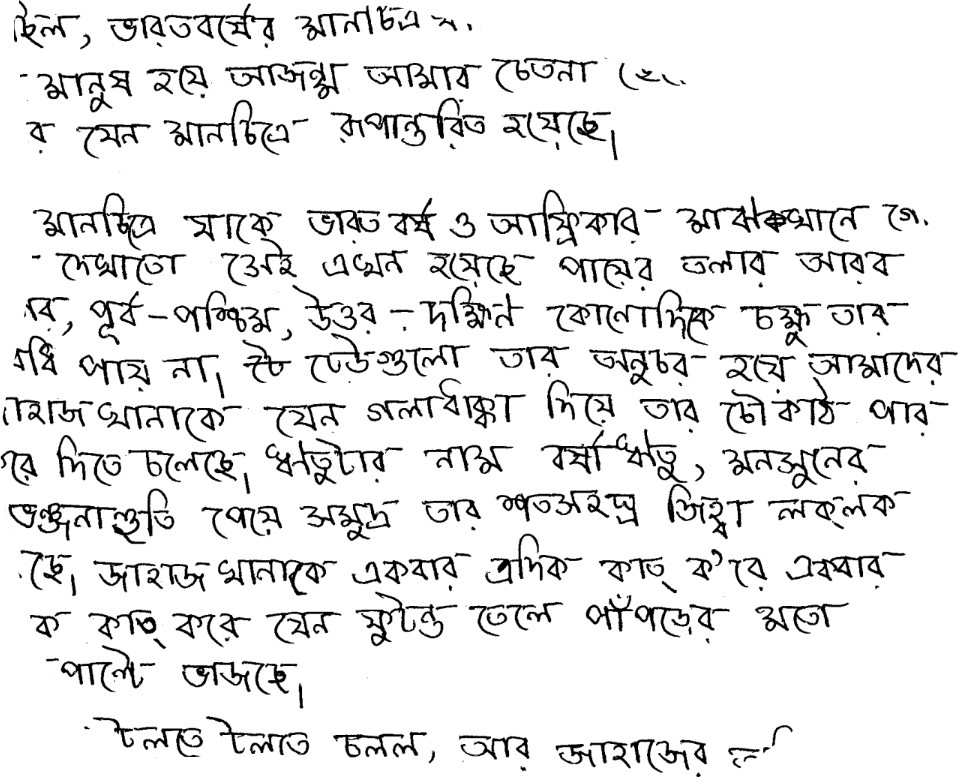 ছিল, ভারতবর্ষের মানচিত্র
মানুষ হয়ে আজন্ম আমার চেতনা
র যেন মানচিত্রে রূপান্তরিত হয়েছে।
মানচিত্রে যাকে ভারতবর্ষ ও আফ্রিকার মাঝখানে গে
দেখাতো সেই এখন হয়েছে পায়ের তলার আরব
গর, পূর্ব-পশ্চিম, উত্তর-দক্ষিণ কোনোদিকে চক্ষু তার
বধি পায় না। ঐ ঢেউগুলো তার অনুচর হয়ে আমাদের
াহাজখানাকে যেন গলাধাক্কা দিয়ে তার চৌকাঠ পার
রে দিতে চলেছে। ঋতুটার নাম বর্ষাঋতু, মনসুনের
ভঞ্জনাহুতি পেয়ে সমুদ্র তার শতসহস্র জিহ্বা লক্‌লক
ছে। জাহাজখানাকে একবার এদিক কাত্ ক'রে একবার
ক কাত্ করে যেন ফুটন্ত তেলে পাঁপড়ের মতো
পাল্টে ভাজছে।
টলতে টলতে চলল, আর জাহাজের